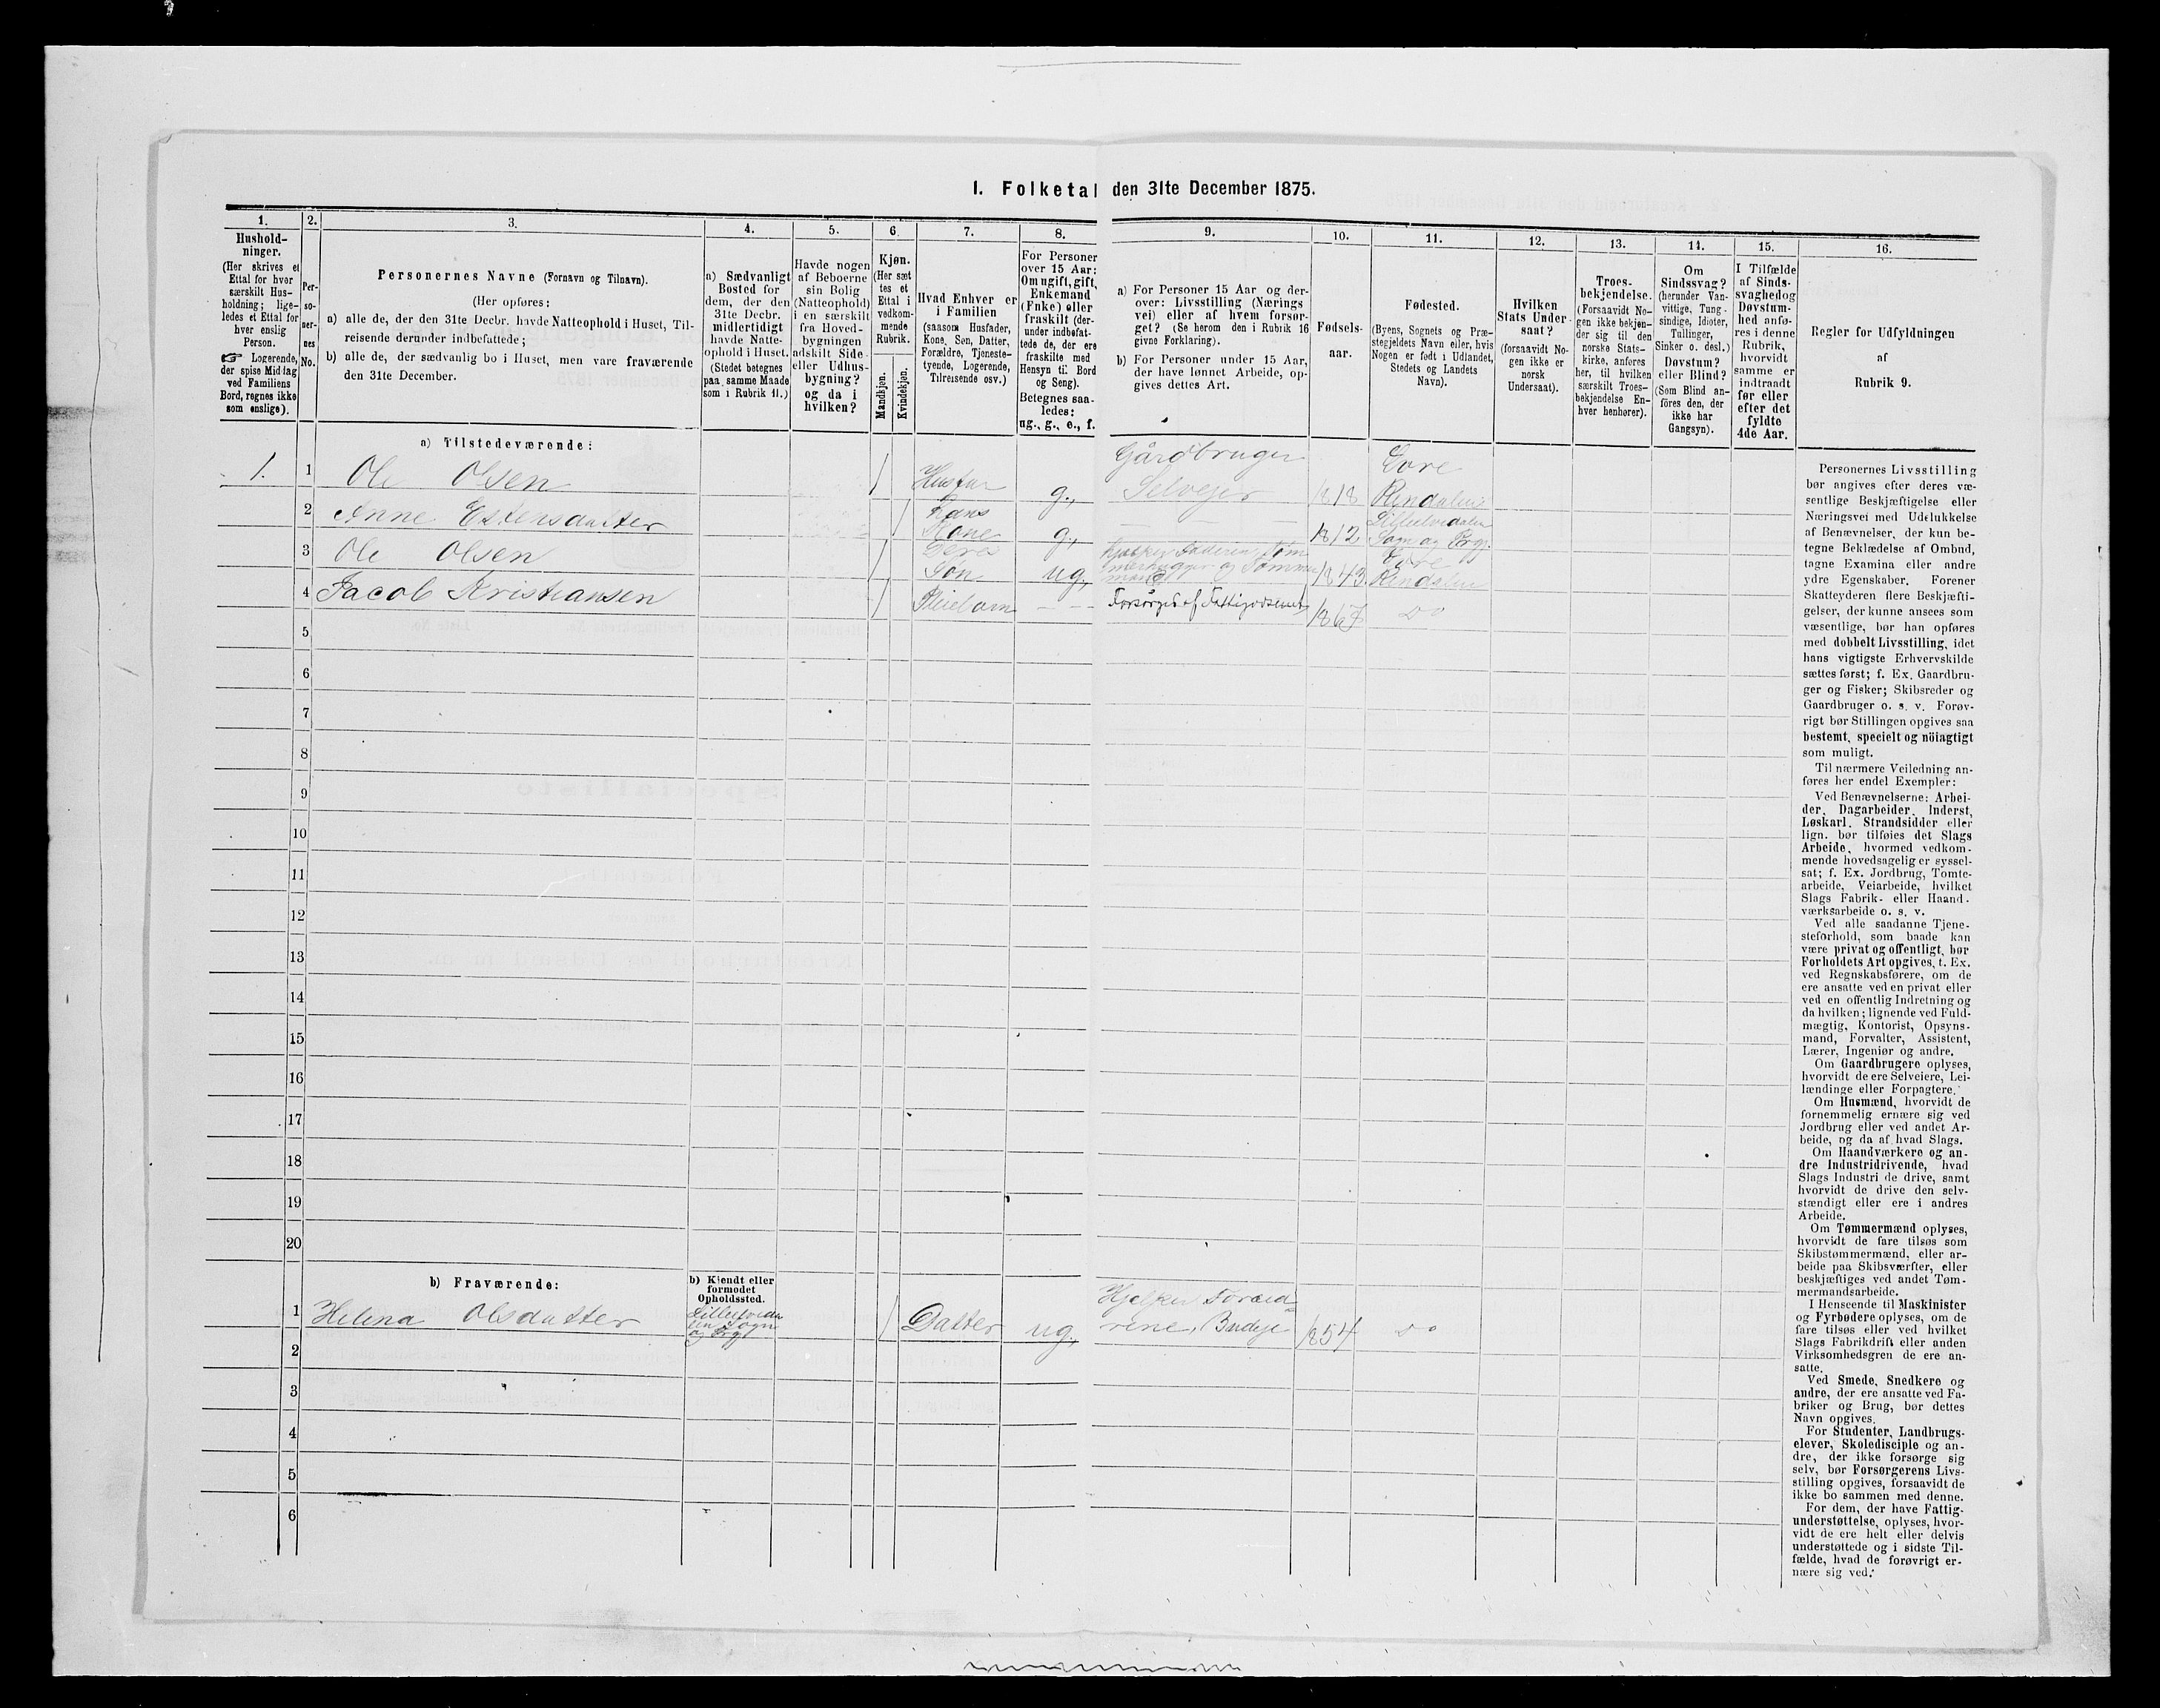 I. Folketal den 31te December 1875.
1.
Hushold-
ninger.
(Her skrives et
Ettal for hver
særskilt Hus-
holdning; lige-
ledes et Ettal for
hver enslig
Person.
☞ Logerende,
der spise Middag
ved Familiens
Bord, regnes ikke
som enslige).
2.
Per-
so-
ner-
nes
No.
3.
Personernes Navne (Fornavn og Tilnavn).
(Her opføres:
a) alle de, der den 31te Decbr. havde Natteophold i Huset, Til-
reisende derunder indbefattede;
b) alle de, der sædvanlig bo i Huset, men vare fraværende
den 31te December.
4.
a) Sædvanligt
Bosted for
dem, der den
31te Decbr.
midlertidigt
havde Natte-
ophold i Huset.
(Stedet betegnes
paa samme Maade
som i Rubrik 11.)
5.
Havde nogen
af Beboerne
sin Bolig
(Natteophold)
i en særskilt
fra Hoved-
bygningen
adskilt Side-
eller Udhus-
bygning?
og da i
hvilken?
6.
Kjøn.
(Her sæt
tes et
Ettal i
vedkom-
mende
Rubrik.
Mandkjøn.
Kvindekjøn.
7.
Hvad Enhver er
i Familien
(saasom Husfader,
Kone, Søn, Datter,
Forældre, Tjeneste-
tyende, Logerende,
Tilreisende osv.)
8.
For Personer
over 15 Aar:
Om ugift, gift,
Enkemand
(Enke) eller
fraskilt (der-
under indbefat-
tede de, der ere
fraskilte med
Hensyn til Bord
og Seng).
Betegnes saa-
ledes:
ug., g., e., f.
9.
a) For Personer 15 Aar og der-
over: Livsstilling (Nærings
vei) eller af hvem forsør-
get? (Se herom den i Rubrik 16
givne Forklaring).
b) For Personer under 15 Aar,
der have lønnet Arbeide, op-
gives dettes Art.
10.
Fødsels-
aar.
11.
Fødested.
(Byens, Sognets og Præ-
stegjeldets Navn eller, hvis
Nogen er født i Udlandet,
Stedets og Landets
Navn).
12.
Hvilken
Stats Under-
saat?
(forsaavidt No-
gen ikke er
norsk
Undersaat).
13.
Troes-
bekjendelse.
(Forsaavidt No-
gen ikke bekjen-
der sig til den
norske Stats-
kirke, anføres
her, til hvilken
særskilt Troes-
bekjendelse En-
hver henhører).
14.
Om
Sindssvag?
(herunder Van-
vittige, Tung-
sindige, Idioter,
Tullinger,
Sinker o. desl.)
Døvstum?
eller Blind?
(Som Blind an-
føres den, der
ikke har
Gangsyn).
15.
I Tilfælde
af Sinds-
svaghed og
Døvstum-
hed anfø-
res i denne
Rubrik,
hvorvidt
samme er
indtraadt
før eller
efter det
fyldte
4de Aar.
16.
Regler for Udfyldningen
af
Rubrik 9.
a) Tilstedeværende:
1. 1 Ole Olsen Husfar g., Gårdbruger Selvejer 1818 Øvre Rendalen
2 Anne Estensdatter Hans Kone g., 1812 Lilleelvedalen Sogn og Prgj.
3 Ole Olsen Deres Søn ug, hjælper Faderen, Tømmerhugger og 1843. Øvre Rendalen
4 Jacob Kristiansen Pleiebarn Forsørges af Fattigvæsenet 1867 Do
5
6
7
8
9
10
11
12
13
14
15
16
17
18
19
20
b) Fraværende:
b) Kjendt eller
formodet
Opholdssted.
1 Helena Olsdatter Lilleelvedalen Sogn og Prgj Datter ug, Hjelper Forældrene, Budeje 1854 Do
2
3
4
5
6
Personernes Livsstilling
bør angives efter deres væ-
sentlige Beskjæftigelse eller
Næringsvei med Udelukkelse
af Benævnelser, der kun be-
tegne Beklædelse af Ombud,
tagne Examina eller andre
ydre Egenskaber. Forener
Skatteyderen flere Beskjæfti-
gelser, der kunne ansees som
væsentlige, bør han opføres
med dobbelt Livsstilling, idet
hans vigtigste Erhvervskilde
sættes først; f. Ex. Gaardbru-
ger og Fisker; Skibsreder og
Gaardbruger o. s. v. Forøv-
rigt bør Stillingen opgives saa
bestemt, specielt og nöiagtigt
som muligt.
Til nærmere Veiledning an-
føres her endel Exempler:
Ved Benævnelserne: Arbei-
der, Dagarbeider, Inderst,
Løskarl, Strandsidder eller
lign. bør tilføies det Slags
Arbeide, hvormed vedkom-
mende hovedsagelig er syssel-
sat; f. Ex. Jordbrug, Tomte-
arbeide, Veiarbeide, hvilket
Slags Fabrik- eller Haand-
værksarbeide o. s. v.
Ved alle saadanne Tjene-
steforhold, som baade kan
være privat og offentligt, bør
Forholdets Art opgives, t. Ex.
ved Regnskabsførere, om de
ere ansatte ved en privat eller
ved en offentlig Indretning og
da hvilken; lignende ved Fuld-
mægtig, Kontorist, Opsyns-
mand, Forvalter, Assistent,
Lærer, Ingeniør og andre.
Om Gaardbrugere oplyses,
hvorvidt de ere Selveiere, Lei-
lændinge eller Forpagtere.
Om Husmænd, hvorvidt de
fornemmelig ernære sig ved
Jordbrug eller ved andet Ar-
beide, og da af hvad Slags.
Om Haandværkere og an-
dre Industridrivende, hvad
Slags Industri de drive, samt
hvorvidt de drive den selv-
stændigt eller ere i andres
Arbeide.
Om Tømmermænd oplyses,
hvorvidt de fare tilsøs som
Skibstømmermænd, eller ar-
beide paa Skibsværfter, eller
beskjæftiges ved andet Tøm-
mermandsarbeide.
I Henseende til Maskinister
og Fyrbødere oplyses, om de
fare tilsøs eller ved hvilket
Slags Fabrikdrift eller anden
Virksomhedsgren de ere an-
satte.
Ved Smede, Snedkere og
andre, der ere ansatte ved Fa-
briker og Brug, bør dettes
Navn opgives.
For Studenter, Landbrugs-
elever, Skoledisciple og an-
dre, der ikke forsørge sig
selv, bør Forsørgerens Livs-
stilling opgives, forsaavidt de
ikke bo sammen med denne.
For dem, der have Fattig-
understøttelse, oplyses, hvor-
vidt de ere helt eller delvis
understøttede og i sidste Til-
fælde, hvad de forøvrigt er-
nære sig ved.